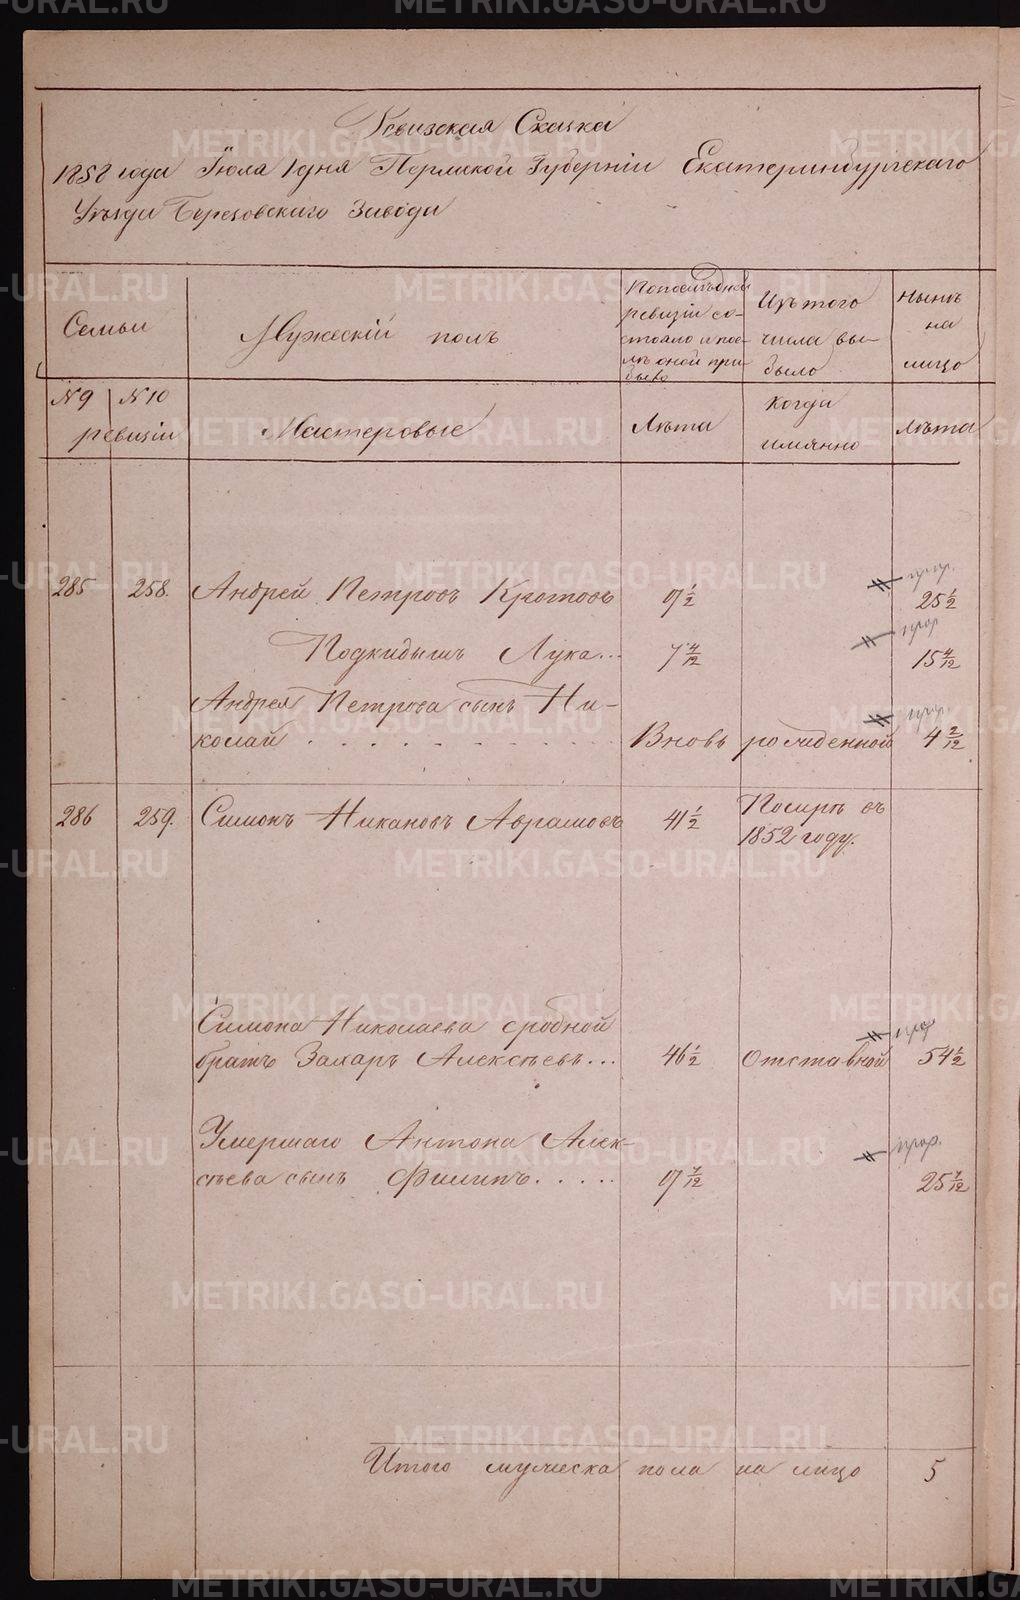 Ревизская Сказка
1858 года Июля 1 дня Пермской Губерніи Екатеринбургскаго
Уѣзда Березовскаго Завода
Семьи
Мужескій полъ
По послѣдней
ревизіи со-
стояло и пос-
лѣ оной при-
было
Изъ того
числа вы-
было
Нынѣ
на
лицо
№ 9 № 10
ревизіи
Мастеровые
Лѣта
Когда
имянно
Лѣта
285 258. Андрей Петровъ Кротовъ 17 1/2 25 1/2
Подкидышъ Лука... 7 4/12 15 4/12
Андрея Петрова сынъ Ни-
колай . . . . . . . . . . . Вновь рожденной 4 2/12
286 259. Симонъ Никановъ Аврамовъ 41 1/2 Помиръ въ
1852 году.
Симона Николаева сродной
братъ Захаръ Алексѣевъ... 46 1/2 Отставной 54 1/2
Умершаго Антона Алек-
сѣева сынъ Филипъ..... 17 7/12 25 7/12
Итого мужеска пола на лицо 5
METRIKI.GASO-URAL.RU